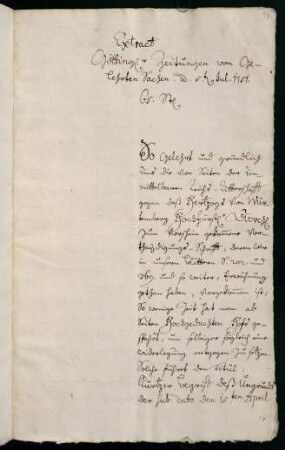 Extract
Götting. Zeitungen von Ge-
lehrten Sachen d. Jul. 1751.
65. St.
So Gelehrt und gründlich
uns die von Seiten der un-
mittelbaren Reichs-Ritterschafft
gegen deß Hertzogs von Wür-
temberg Hochfürstl. Durchl.
zum Vorschein gekommene Ver-
theidigungs-Schrifft, deren wir
in unsern Blättern S. und
und so weiter, Erwehnung
gethan haben, vorgekommen ist,
So wenige Zeit hat man ab
Seiten Hochgedachten Hofs ge-
säumt, um selbiger sogleich eine
widerlegung entgegen zu setzen.
Solche führet den Titul
Kurtzer Begriff deß Ungrunds
der sub dato den 10ten April